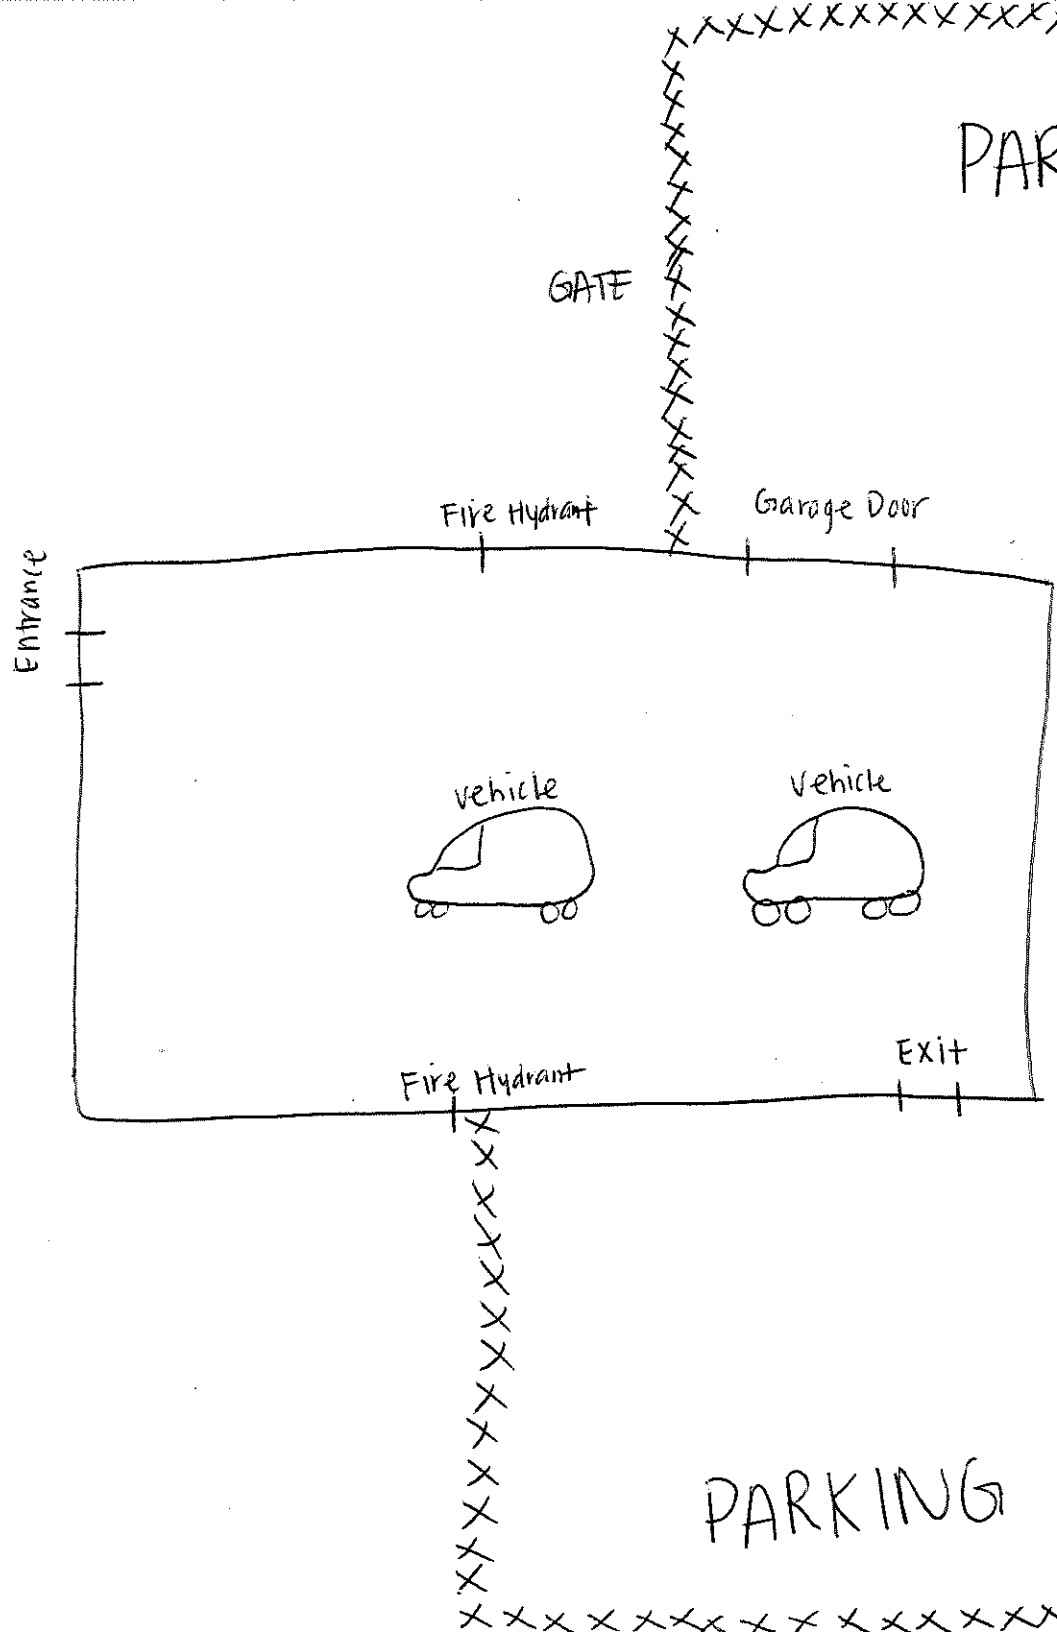 PAR
GATE
Fire Hydrant
Garage Door
Entrance
vehicle
vehicle
Exit
Fire Hydrant
PARKING